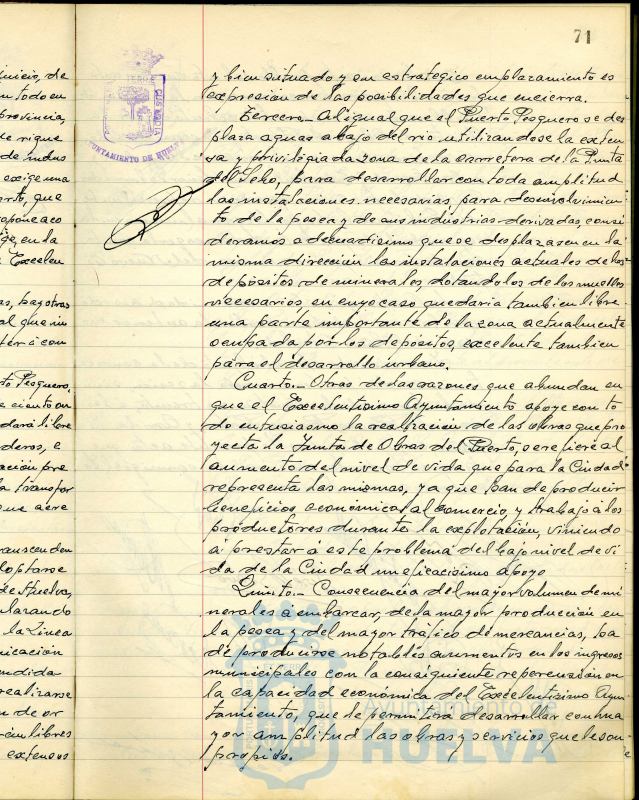 71
y bien situado y em estrategico emplazamiento es
expresión de las posibilidades que encierra.
Tercero.- Al igual que el Puerto Pesquero se des
plaza aguas abajo del rio utilizandose la exten
sa y privilegiada zona de la carretera de la Punta
del Sebo, para desarrollar con toda amplitud
las instalaciones necesarias, para desenvolvimien
to de la pesca y de sus industrias derivadas, consi
deramos adecuadisimo que se desplazasen en la
misma dirección las instalaciones actuales de los
depósitos de minerales dotandolos de los muelles
necesarios en cuyo caso quedaria tambien libre
una parte importante de la zona actualmente
ocupada por los depósitos, excelente tambien
para el desarrollo urbano.
Cuarto.- Otras de las razones que abundan en
que el Excelentisimo Ayuntamiento apoye con to
do entusiasmo la realización de las obras que pro
yecta la Junta de Obras del Puerto, se refiere al
aumento del nivel de vida que para la Ciudad
representa las mismas, ya que han de producir
beneficios, económicos al comercio, y trabajo a los
productores durante la explotación, viniendo
á prestar á este problema del bajo nivel de vi
da de la Ciudad un eficacisimo apoyo
Quinto.- Consecuencia del mayor volumen de mi
nerales á embarcar, de la mayor producción en
la pesca y del mayor tráfico de mercancias, ha
de producirse notables aumentos en los ingresos
municipales con la consiguiente repercusión en
la capacidad económica del Excelentisimo Ayun
tamiento, que le permitirá desarrollar con ma
yor amplitud las obras y servicios que le son
propios.
AYUNTAMIENTO DE HUELVA
Ayuntamiento de
HUELVA
uicio, de
n todo en
provincia,
de sigue
de indus
exige una
arto, que
opone aco
ige, en la
Excelen
as, hay otras
al que in
tér á con
to Pesquero,
e ciento en
dará libre
deros, e
ación pre
la transfor
que aere
transcenden
doptarse
de Huelva,
larando
la Linea
nicación
endida
realizarse
n de or
rán libres
extensos